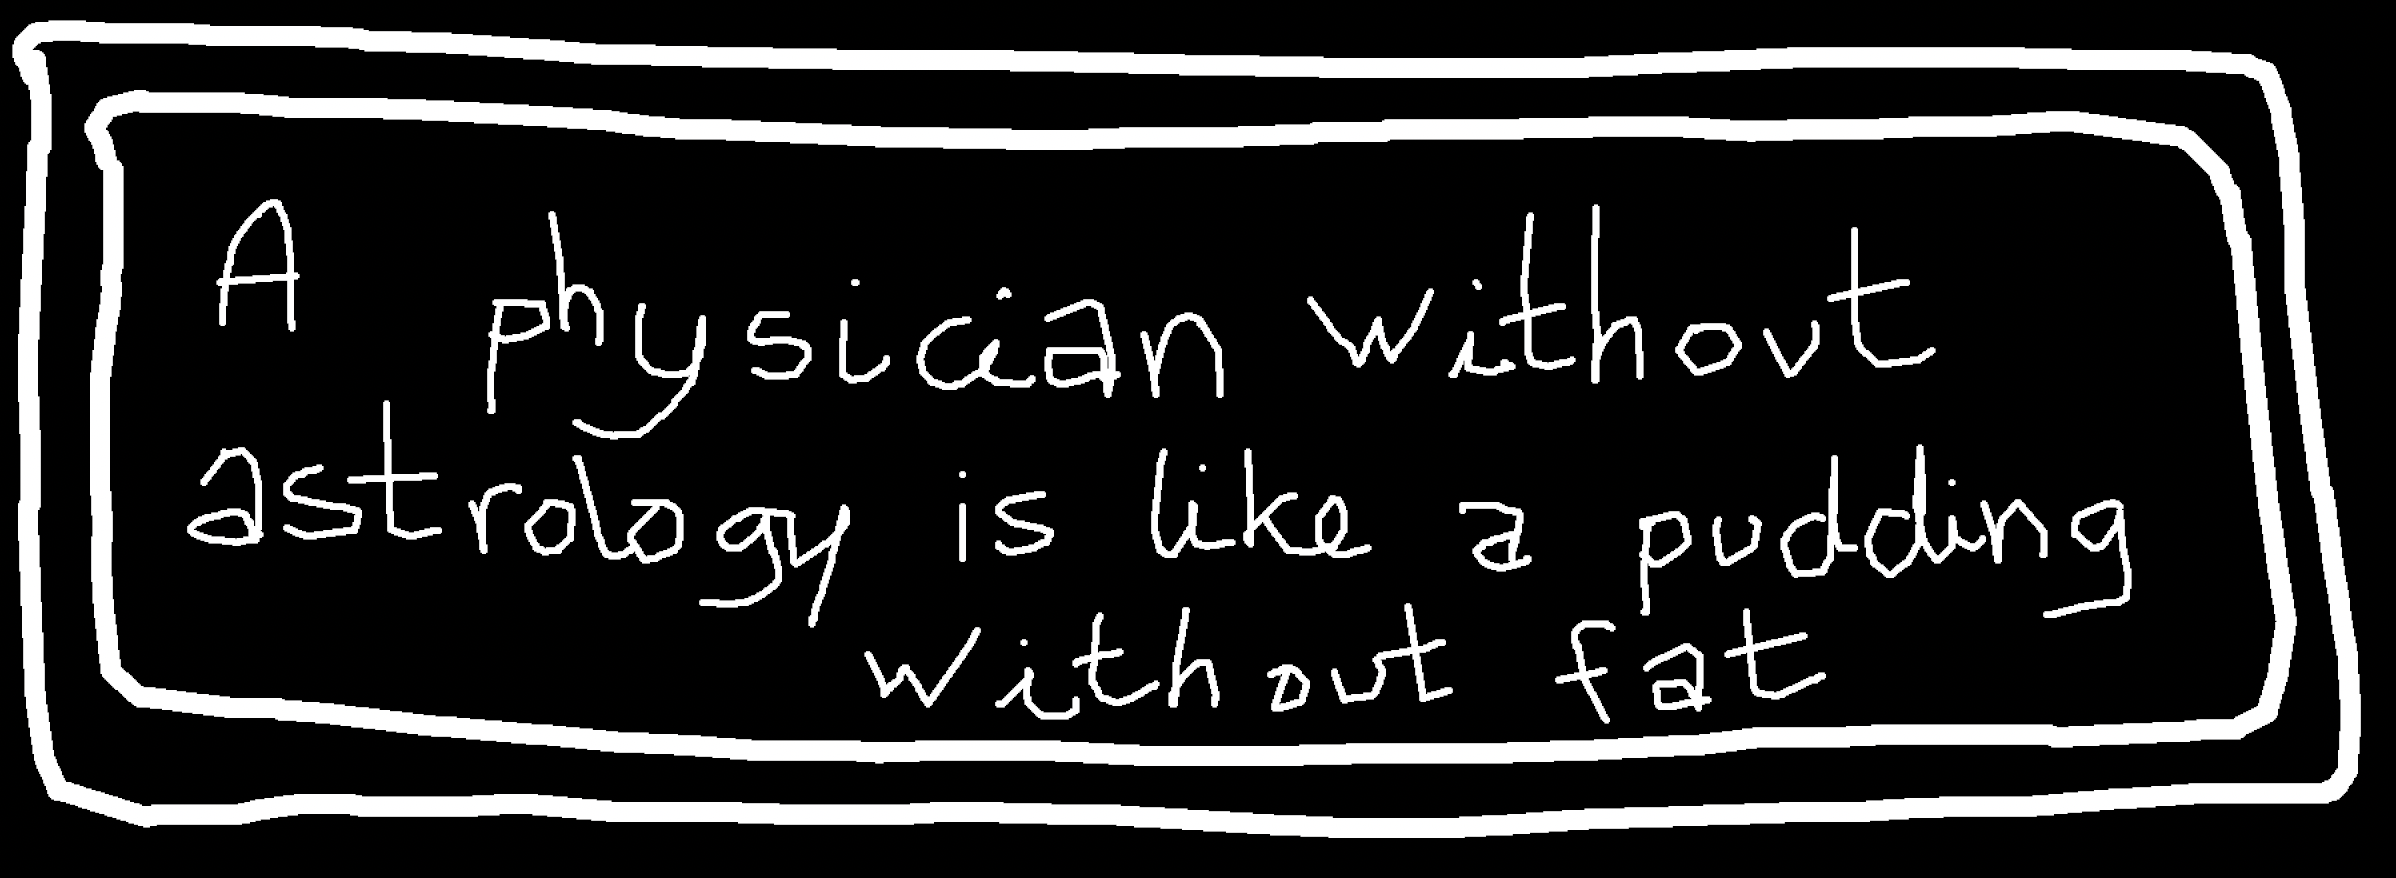 A physician without
astrology is like a pudding
without fat